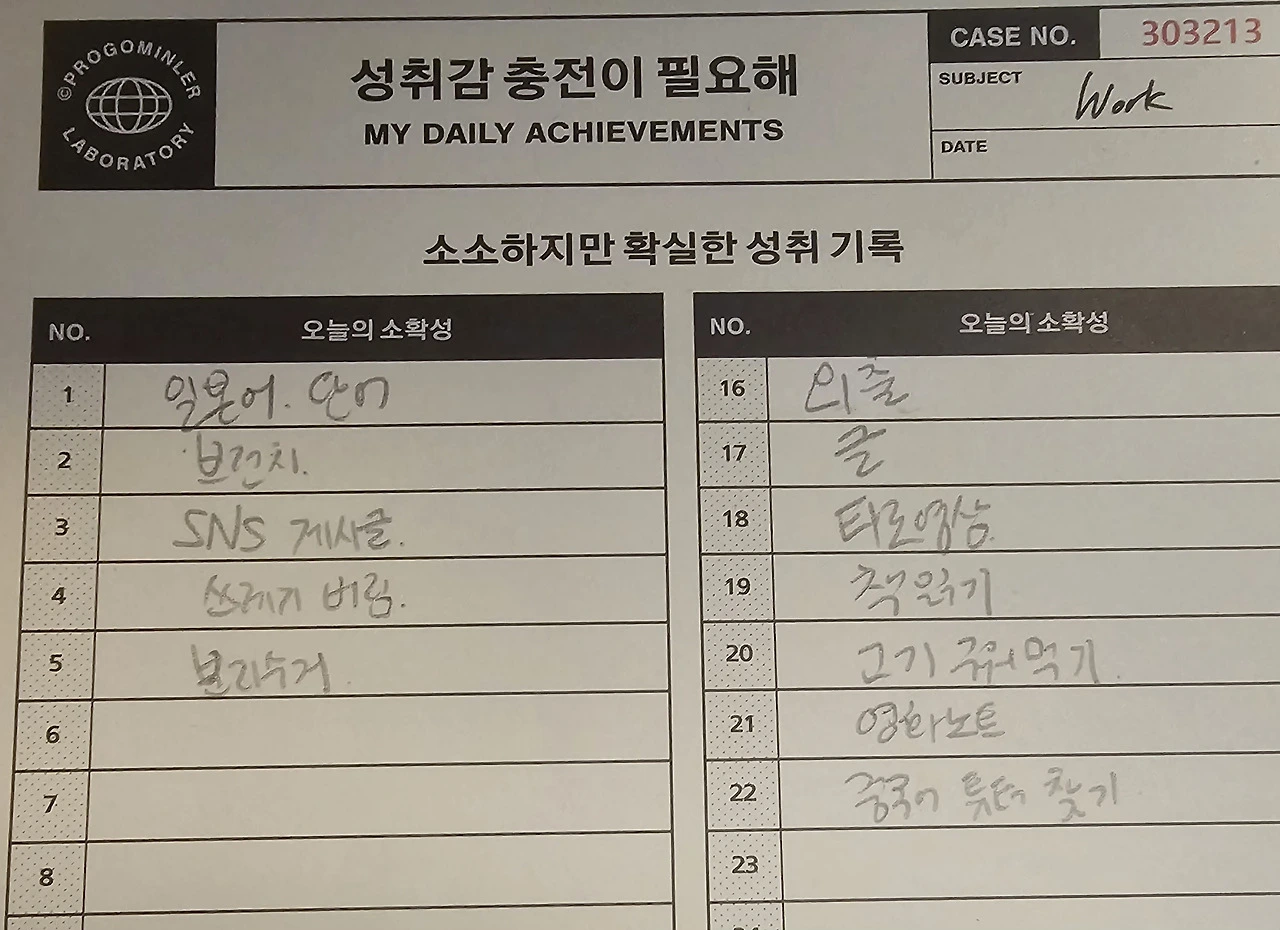 ©PROGOMINLER LABORATORY
성취감 충전이 필요해
MY DAILY ACHIEVEMENTS
CASE NO. 303213
SUBJECT Work
DATE
소소하지만 확실한 성취 기록
NO. 오늘의 소확성
1 일본어. 단어
2 브런치.
3 SNS 게시글.
4 쓰레기 버림.
5 분리수거.
6
7
8
NO. 오늘의 소확성
16 외출
17 글
18 타로영상.
19 책읽기
20 고기 구워먹기.
21 영화노트
22 중국어 튜터 찾기
23